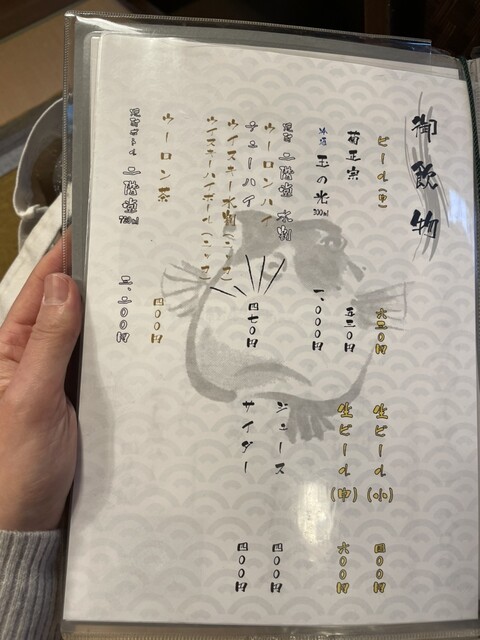 御飲物
ビール(中) 六三〇円
菊正宗 五三〇円
冷酒 玉の光 300ml 一、〇〇〇円
焼酎 二階堂 水割
ウーロンハイ
チューハイ 四七〇円
ウイスキー水割(シングル)
ウイスキーハイボール(シングル)
ウーロン茶 四〇〇円
焼酎ボトル 二階堂 720ml 三、二〇〇円
生ビール(小) 四〇〇円
生ビール(中) 六〇〇円
ジュース 四〇〇円
サイダー 四〇〇円